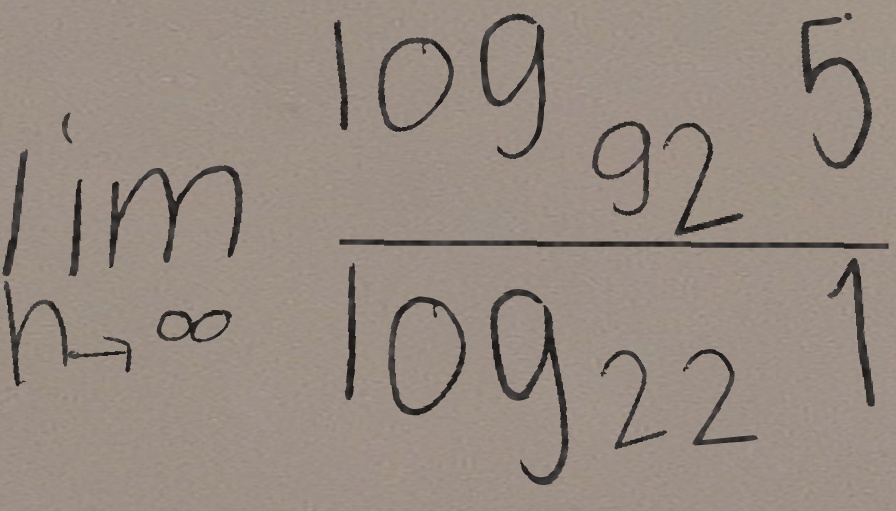 lim n→∞ log_92 5 / log_22 1